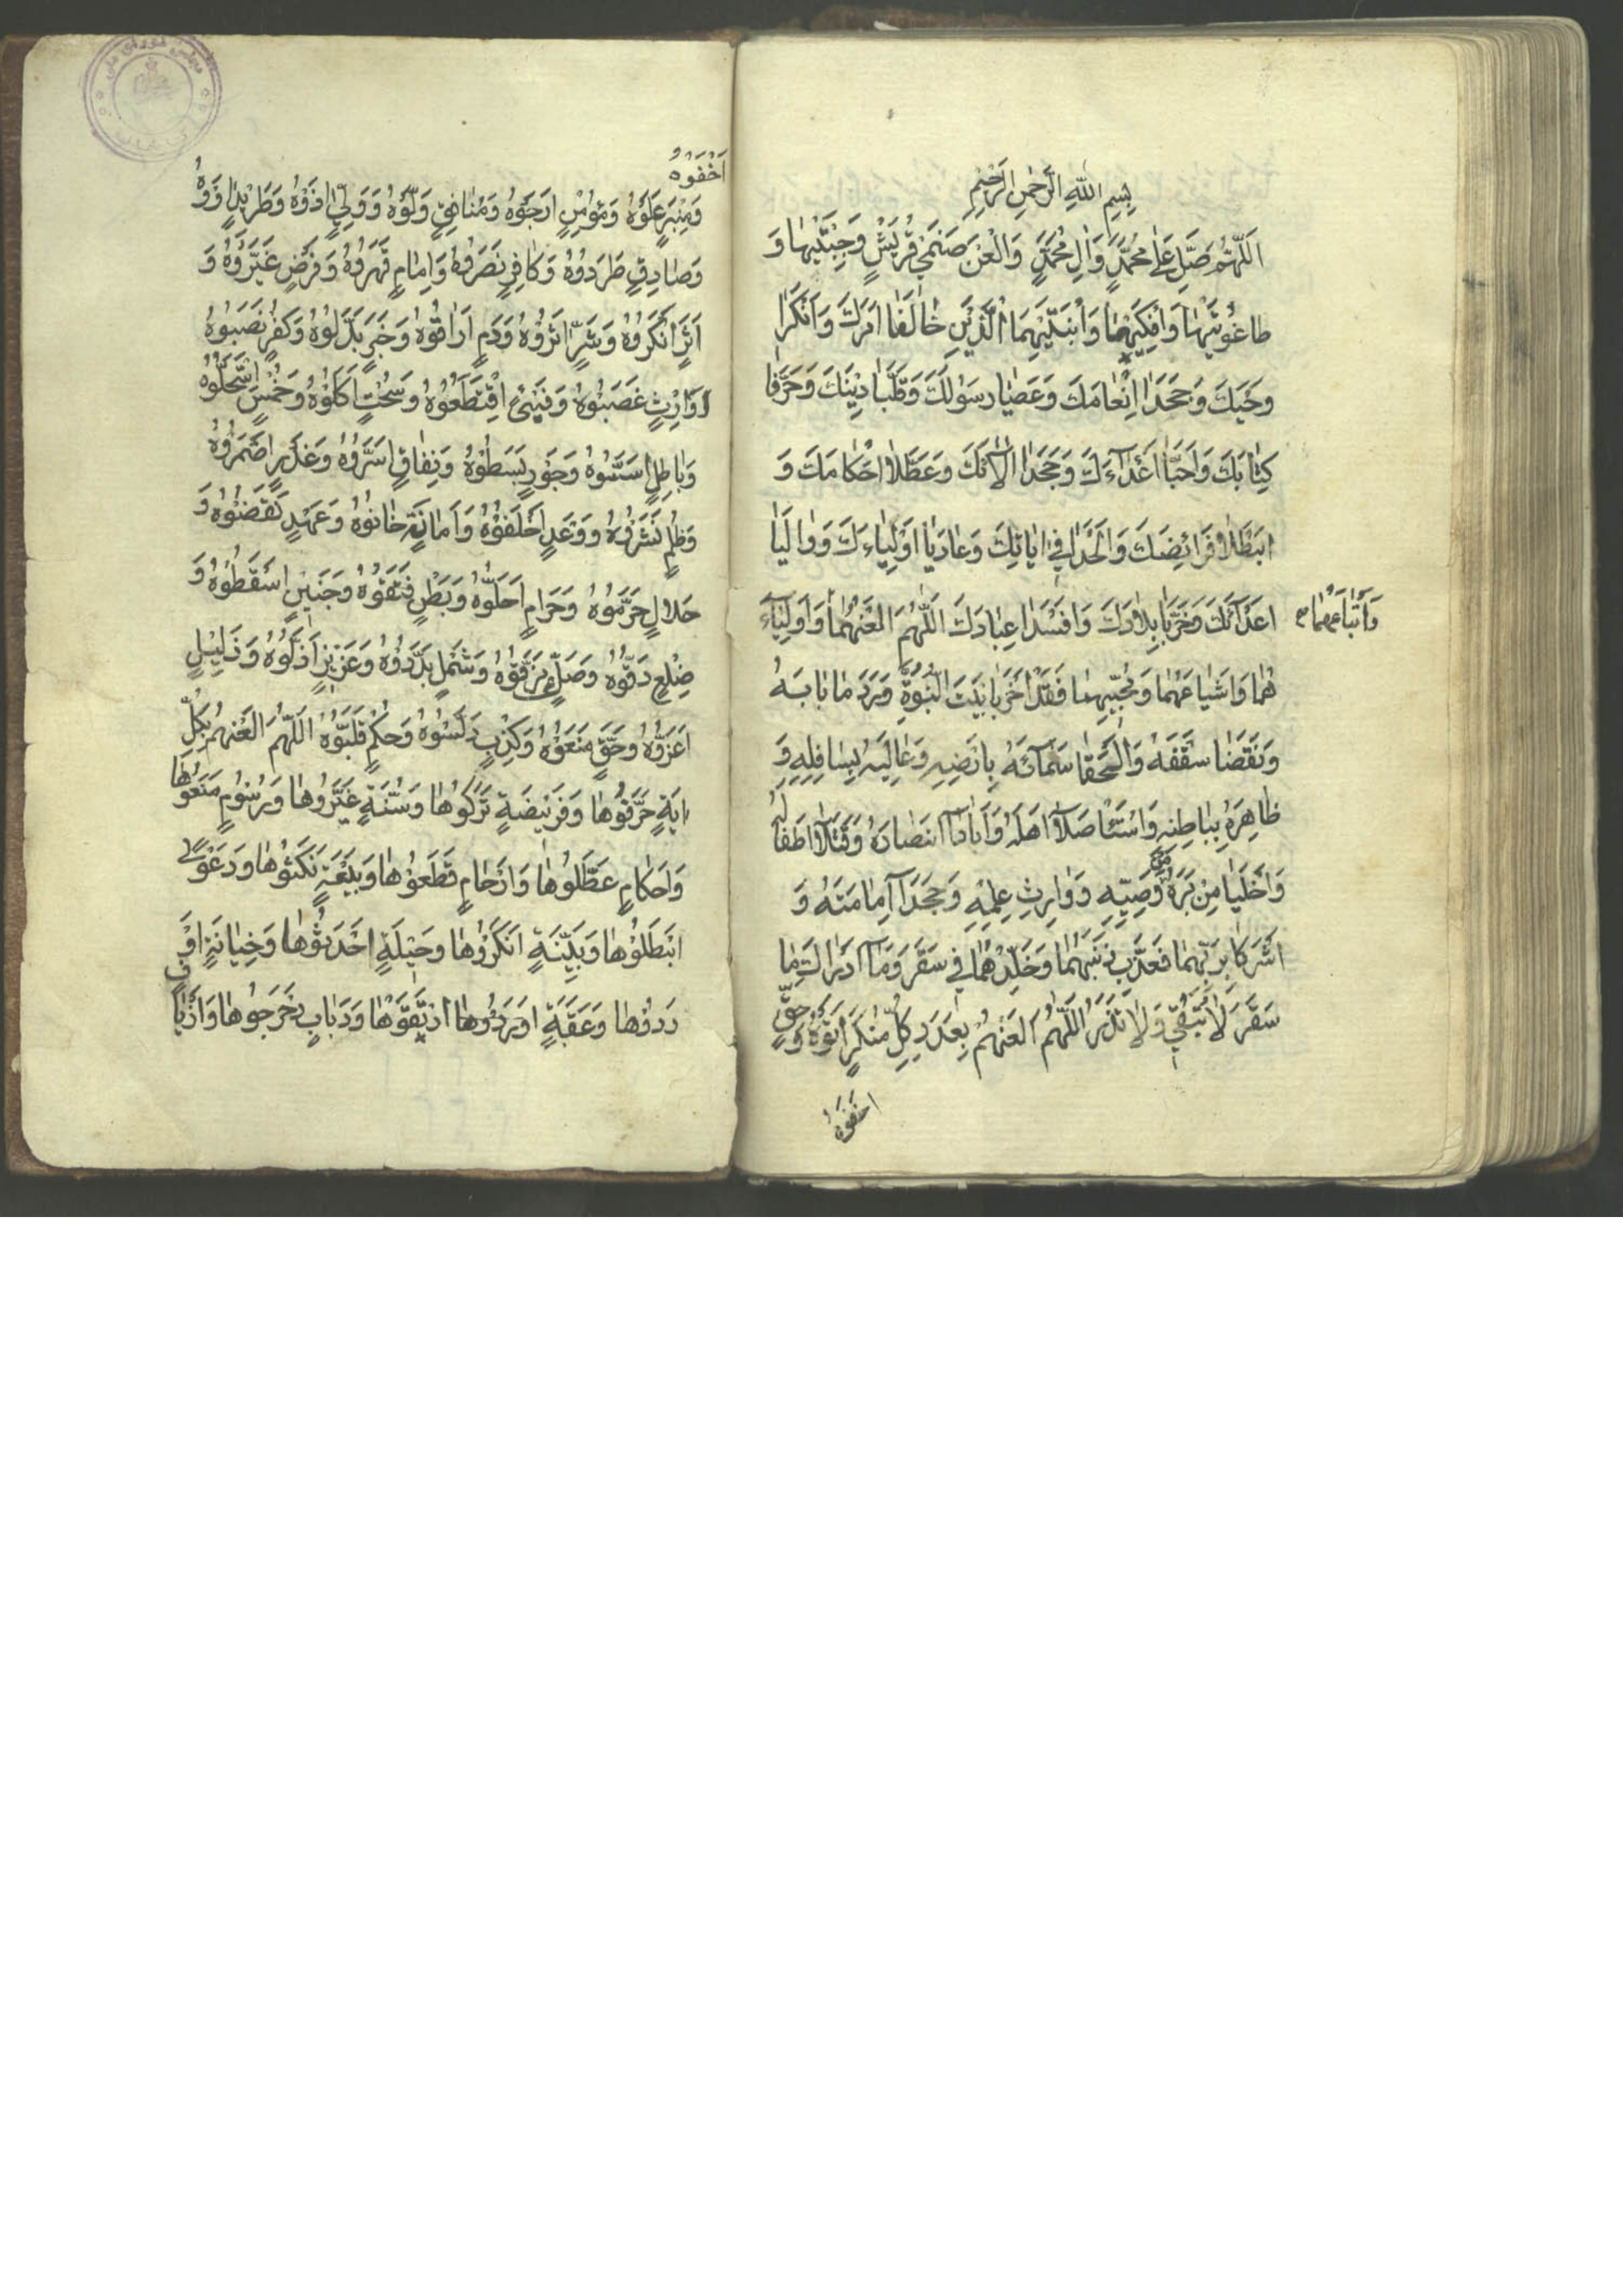 بِسْمِ اللّٰهِ الرَّحْمٰنِ الرَّحِيْمِ
اَللّٰهُمَّ صَلِّ عَلٰى مُحَمَّدٍ وَاٰلِ مُحَمَّدٍ وَالْعَنْ صَنَمَيْ قُرَيْشٍ وَجِبْتَيْهٰا وَ
طاغُوتَيْهٰا وَاَفِكَيْهٰا وَابْنَتَيْهِمَا الَّذَيْنِ خٰالَفٰا اَمْرَكَ وَاَنْكَرٰا
وَحْيَكَ وَجَحَدٰا اِنْعٰامَكَ وَعَصَيٰا رَسُولَكَ وَقَلَّبٰا دِيْنَكَ وَحَرَّفٰا
كِتٰابَكَ وَاَحَبّٰا اَعْدٰآءَكَ وَجَحَدٰا اٰلآئَكَ وَعَطَّلاٰ اَحْكٰامَكَ وَ
ابْطَلاٰ فَرٰائِضَكَ وَاَلْحَدٰا فِي اٰيٰاتِكَ وَعٰادَيٰا اَوْلِيٰاءَكَ وَوٰالَيٰا
اَعْدٰآئَكَ وَخَرَّبٰا بِلاٰدَكَ وَاَفْسَدٰا عِبٰادَكَ اَللّٰهُمَّ الْعَنْهُمٰا وَاَوْلِيٰآءَ
وَاَتْبٰاعَهُمٰا
هُمٰا وَاَشْيٰاعَهُمٰا وَمُحِبِّيْهِمٰا فَقَدْ اَخْرَبٰا بَيْتَ النُّبُوَّةِ وَرَدَمٰا بٰابَهُ
وَنَقَضٰا سَقْفَهُ وَاَلْحَقٰا سَمٰآئَهُ بِاَرْضِهِ وَعٰالِيَهُ بِسٰافِلِهِ وَ
ظٰاهِرَهُ بِبٰاطِنِهِ وَاسْتَأْصَلاٰ اَهْلَهُ وَاَبٰادٰا اَنْصٰارَهُ وَقَتَلاٰ اَطْفٰالَهُ
وَاَخْلَيٰا مِنْبَرَهُ مِنْ وَصِيِّهِ وَوٰارِثِ عِلْمِهِ وَجَحَدٰا اِمٰامَتَهُ وَ
اَشْرَكٰا بِرَبِّهِمٰا فَعَذِّبْ ذَنْبَهُمٰا وَخَلِّدْهُمٰا فِي سَقَرَ وَمٰا اَدْرٰاكَ مٰا
سَقَرَ لاٰ تُبْقِي وَلاٰ تَذَرُ اَللّٰهُمَّ الْعَنْهُمْ بِعَدَدِ كُلِّ مُنْكَرٍ اَتَوْهُ وَحَقٍّ
اخفَوْهُ
اَخْفَوْهُ
وَمِنْبَرٍ عَلَوْهُ وَمُؤْمِنٍ اَرْجَوْهُ وَمُنٰافِقٍ وَلَّوْهُ وَوَلِيٍّ اٰذَوْهُ وَطَرِيْدٍ اٰوَوْهُ
وَصٰادِقٍ طَرَدُوْهُ وَكٰافِرٍ نَصَرُوْهُ وَاِمٰامٍ قَهَرُوْهُ وَفَرْضٍ غَيَّرُوْهُ وَ
اَثَرٍ اَنْكَرُوْهُ وَشَرٍّ اٰثَرُوْهُ وَدَمٍ اَرٰاقُوْهُ وَخَبَرٍ بَدَّلُوْهُ وَكُفْرٍ نَصَبُوْهُ
وَاِرْثٍ غَصَبُوْهُ وَفَيْئٍ اقْتَطَعُوْهُ وَسُحْتٍ اَكَلُوْهُ وَخُمْسٍ اسْتَحَلُّوْهُ
وَبٰاطِلٍ اَسَّسُوْهُ وَجَوْرٍ بَسَطُوْهُ وَنِفٰاقٍ اَسَرُّوْهُ وَغَدْرٍ اَضْمَرُوْهُ
وَظُلْمٍ نَشَرُوْهُ وَوَعْدٍ اَخْلَفُوْهُ وَاَمٰانَةٍ خٰانُوْهُ وَعَهْدٍ نَقَضُوْهُ وَ
حَلالٍ حَرَّمُوْهُ وَحَرٰامٍ اَحَلُّوْهُ وَبَطْنٍ فَتَقُوْهُ وَجَنِيْنٍ اَسْقَطُوْهُ وَ
ضِلْعٍ دَقُّوْهُ وَصَكٍّ مَزَّقُوْهُ وَشَمْلٍ بَدَّدُوْهُ وَعَزِيْزٍ اَذَلُّوْهُ وَذَلِيْلٍ
اَعَزُّوْهُ وَحَقٍّ مَنَعُوْهُ وَكِذْبٍ دَلَّسُوْهُ وَحُكْمٍ قَلَّبُوْهُ اَللّٰهُمَّ الْعَنْهُمْ بِكُلِّ
اٰيَةٍ حَرَّفُوْهٰا وَفَرِيْضَةٍ تَرَكُوْهٰا وَسُنَّةٍ غَيَّرُوْهٰا وَرُسُوْمٍ مَنَعُوْهٰا
وَاَحْكٰامٍ عَطَّلُوْهٰا وَاَرْحٰامٍ قَطَعُوْهٰا وَبَيْعَةٍ نَكَثُوْهٰا وَدَعْوًى
اَبْطَلُوْهٰا وَبَيِّنَةٍ اَنْكَرُوْهٰا وَحِيْلَةٍ اَحْدَثُوْهٰا وَخِيٰانَةٍ اَوْ
رَدُوْهٰا وَعَقَبَةٍ ارْتَقَوْهٰا وَدَبٰابٍ دَحْرَجُوْهٰا وَاَزْيٰافٍ